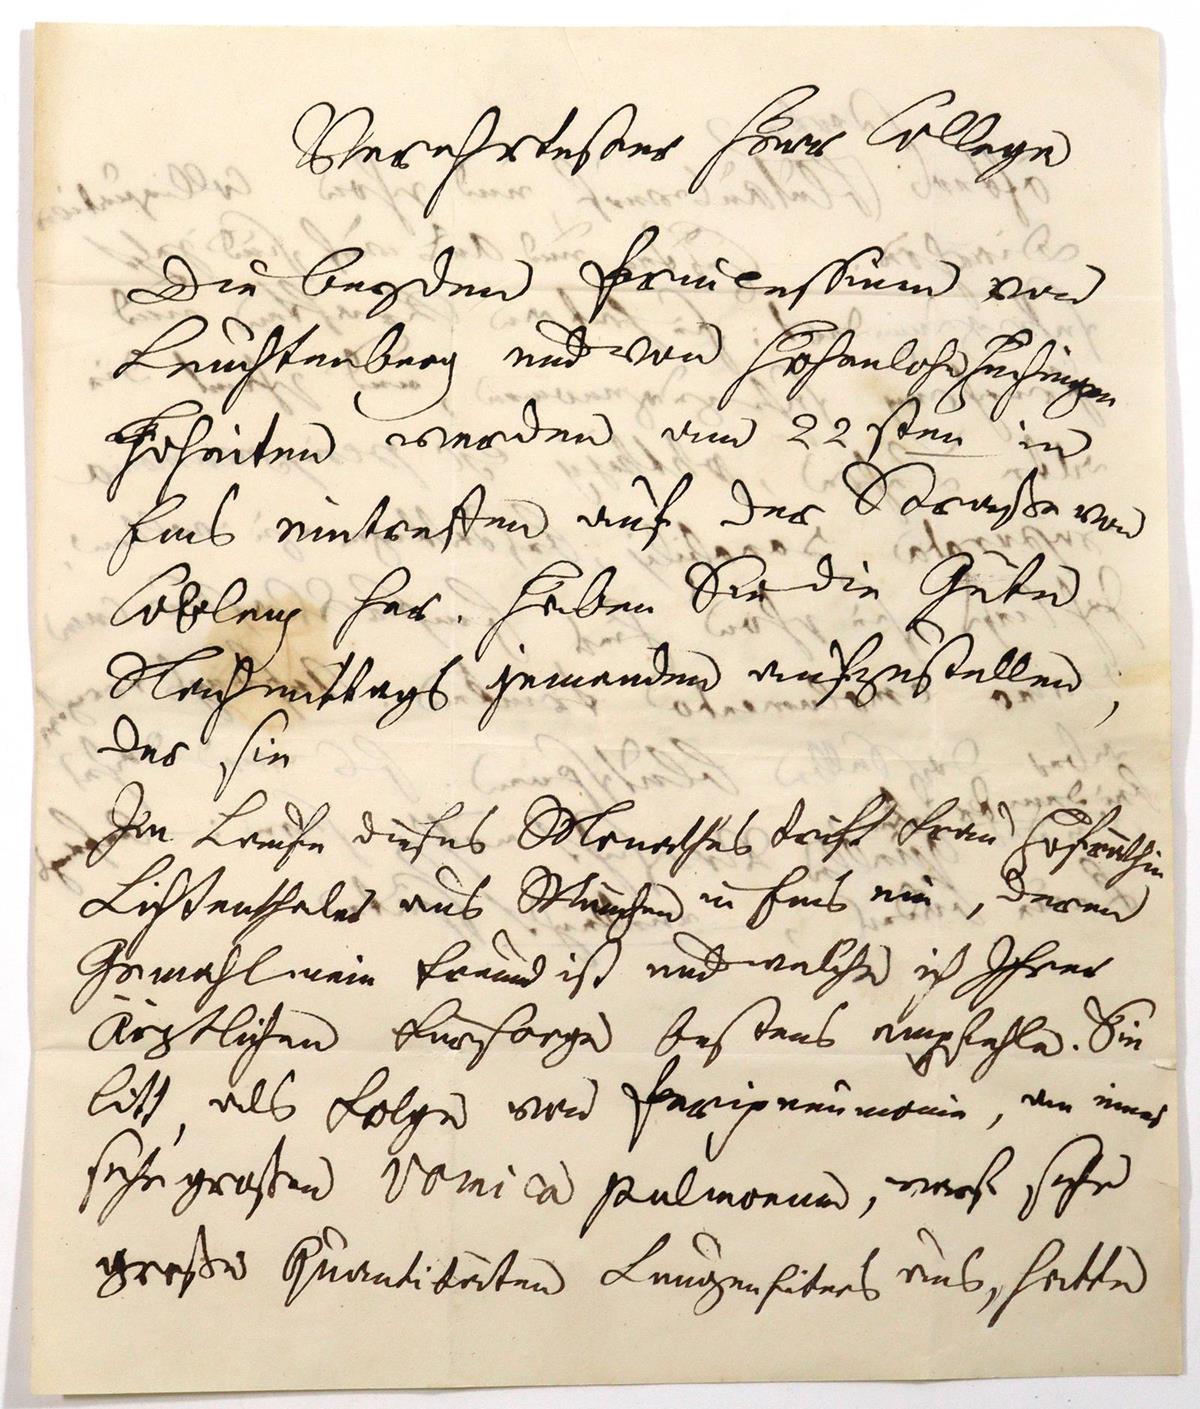 Verehrtester Herr College
Die beyden Princessinen von
Leuchtenberg und von Hohenlohe Hechingen
Hoheiten werden am 22sten in
Ems eintreffen auf der Straße von
Coblenz her. Haben Sie die Güte
Nachmittags jemanden aufzustellen,
der sie
Im Laufe dieses Monathes trift Frau Hofräthin
Lichtenthaler aus München in Ems ein, deren
Gemahl mein Freund ist und welche ich Ihrer
Ärztlichen Fürsorge bestens empfehle. Sie
litt, als Folge von Peripneumonie, an einer
sehr großen Vomica pulmonum, warf sehr
große Quantitäten Lungeneiters aus, hatte